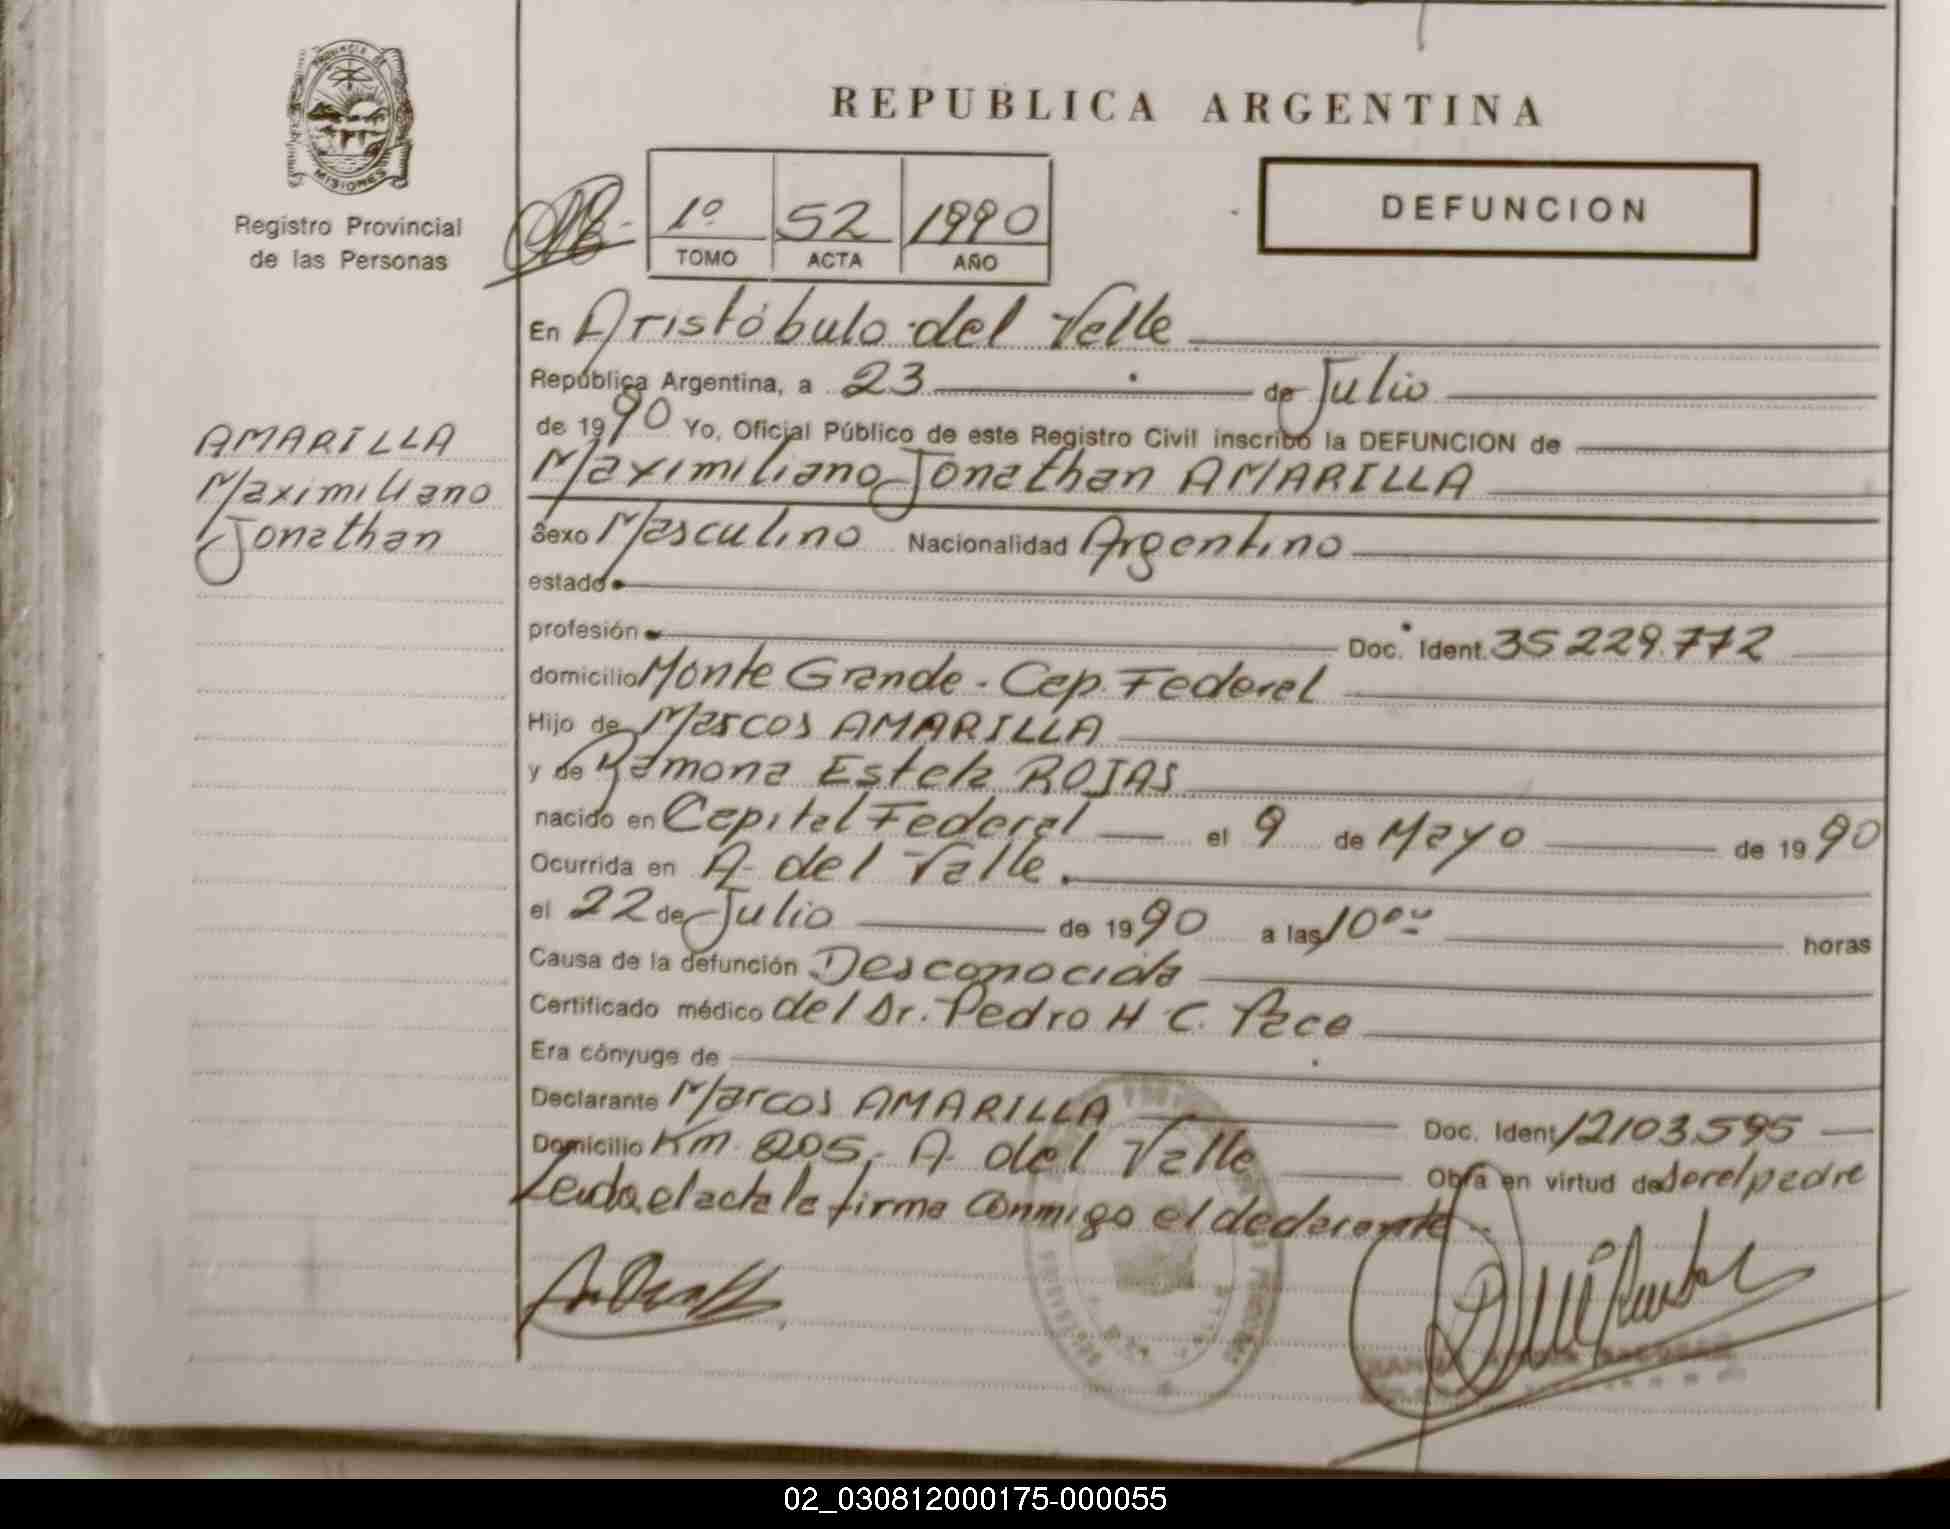 PROVINCIA DE
MISIONES
Registro Provincial
de las Personas
AMARILLA
Maximiliano
Jonathan
REPUBLICA ARGENTINA
1º 52 1990
TOMO ACTA AÑO
DEFUNCION
En Aristóbulo del Valle
República Argentina, a 23 de Julio
de 1990 Yo, Oficial Público de este Registro Civil inscribo la DEFUNCION de
Maximiliano Jonathan AMARILLA
Sexo Masculino Nacionalidad Argentino
estado
profesión Doc. Ident. 35229.772
domicilio Monte Grande - Cap. Federal
Hijo de Marcos AMARILLA
y de Ramona Estela ROJAS
nacido en Capital Federal el 9 de Mayo de 1990
Ocurrida en A. del Valle.
el 22 de Julio de 1990 a las 10⁰⁰ horas
Causa de la defunción Desconocida
Certificado médico del Dr. Pedro H C. Pace
Era cónyuge de
Declarante Marcos AMARILLA Doc. Ident 12103.595
Domicilio Km. 205, A. del Valle Obra en virtud de ser el padre
Leida, el acta la firma conmigo el declarante
02_030812000175-000055